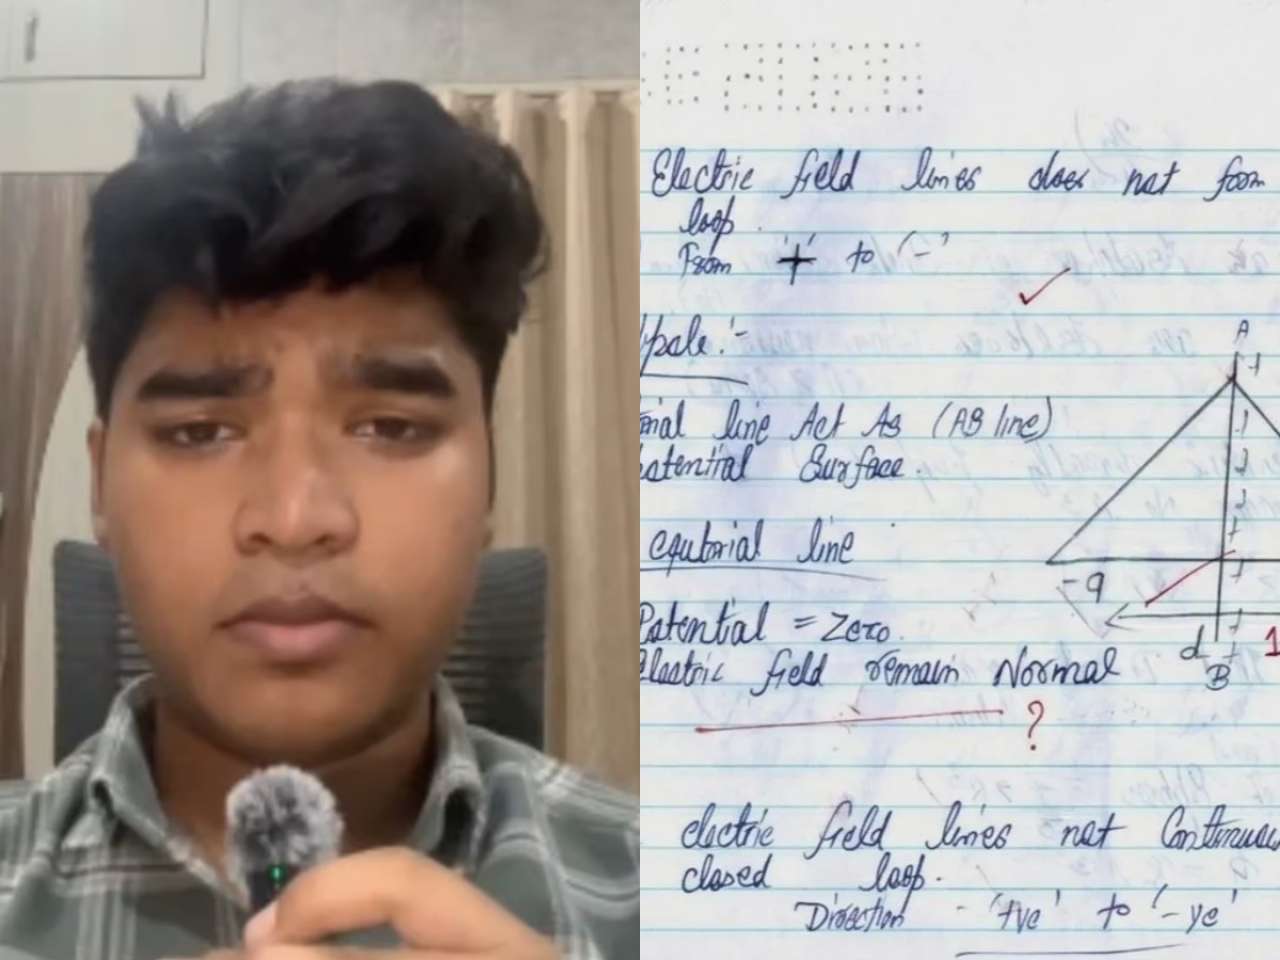 Electric field lines does not form
loop.
From '+' to '-'
A
line Act As (AB line)
Surface.
equtorial line
-q
Potential = Zero.
d
1
B
Electric field remain Normal
?
electric field lines not Continuous
closed loop.
Direction - '+ve' to '-ve'